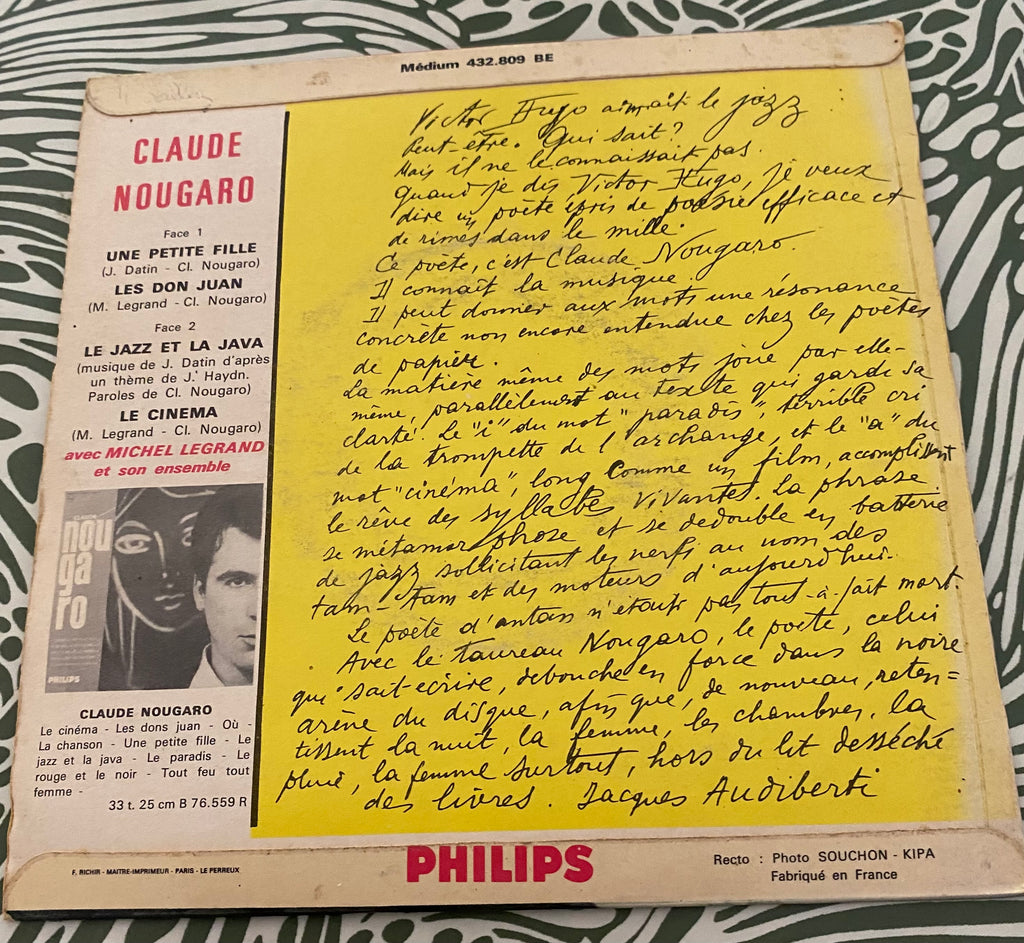 Médium 432.809 BE
CLAUDE
NOUGARO
Face 1
UNE PETITE FILLE
(J. Datin - Cl. Nougaro)
LES DON JUAN
(M. Legrand - Cl. Nougaro)
Face 2
LE JAZZ ET LA JAVA
(musique de J. Datin d'après
un thème de J. Haydn.
Paroles de Cl. Nougaro)
LE CINEMA
(M. Legrand - Cl. Nougaro)
avec MICHEL LEGRAND
et son ensemble
nou
ga
ro
PHILIPS
CLAUDE NOUGARO
Le cinéma - Les dons juan - Où -
La chanson - Une petite fille - Le
jazz et la java - Le paradis - Le
rouge et le noir - Tout feu tout
femme -
33 t. 25 cm B 76.559 R
Victor Hugo aimait le jazz
Peut-être. Qui sait ?
Mais il ne le connaissait pas.
Quand je dis Victor Hugo, je veux
dire un poète épris de poésie efficace et
de rimes dans le mille.
Ce poète, c'est Claude Nougaro.
Il connaît la musique.
Il peut donner aux mots une résonance
concrète non encore entendue chez les poètes
de papier.
La matière même des mots joue par elle-
même, parallèlement au texte qui garde sa
clarté. Le "i" du mot "paradis", terrible cri
de la trompette de l'archange, et le "a" du
mot "cinéma", long comme un film, accomplissent
le rêve des syllabes vivantes. La phrase
se métamorphose et se dédouble en batterie
de jazz sollicitant les nerfs au nom des
tam-tam et des moteurs d'aujourd'hui.
Le poète d'antan n'était pas tout-à-fait mort.
Avec le taureau Nougaro, le poète, celui
qui sait écrire, débouche en force dans la noire
arène du disque, afin que, de nouveau, reten=
tissent la nuit, la femme, les chambres, la
pluie, la femme surtout, hors du lit desséché
des livres. Jacques Audiberti
F. RICHIR - MAITRE-IMPRIMEUR - PARIS - LE PERREUX
PHILIPS
Recto : Photo SOUCHON - KIPA
Fabriqué en France